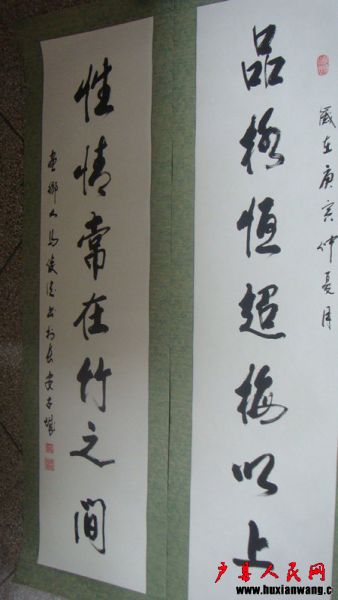 歲在庚寅仲夏月
品格恒超梅以上
性情常在竹之间
户县人民网
www.huxianwang.c